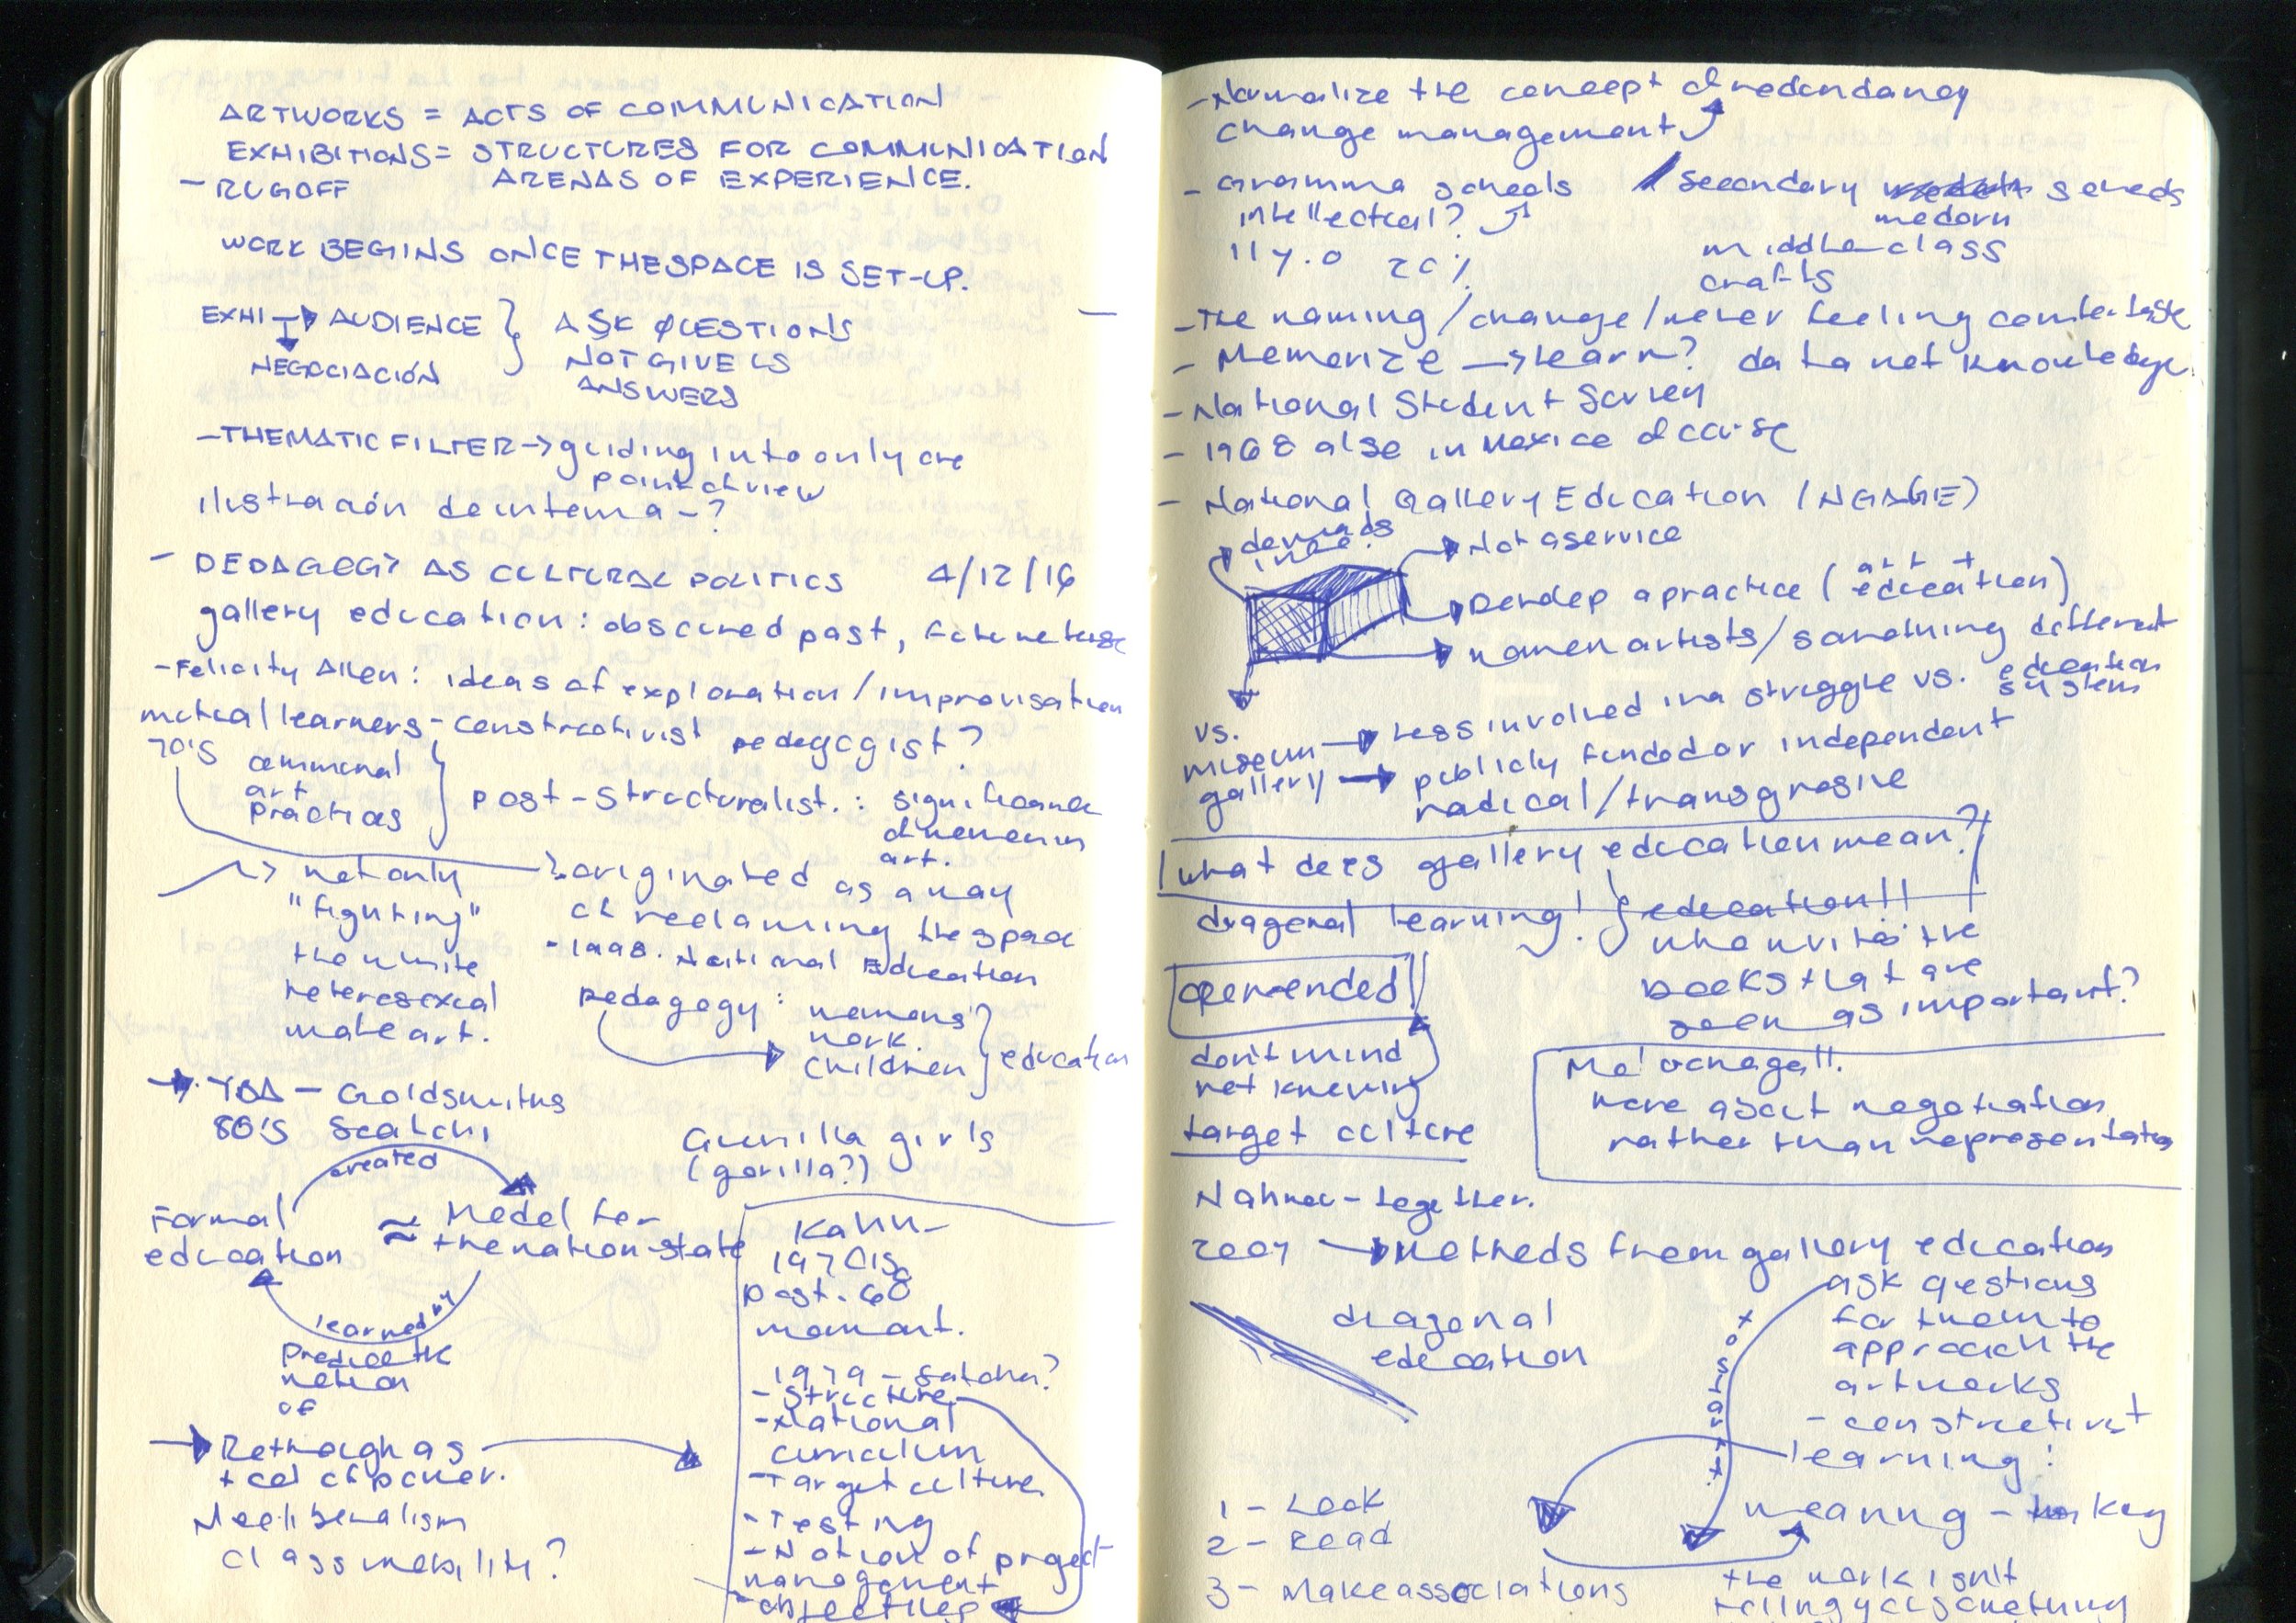 ARTWORKS = ACTS OF COMMUNICATION
EXHIBITIONS = STRUCTURES FOR COMMUNICATION
- RUGOFF ARENAS OF EXPERIENCE.
WORK BEGINS ONCE THE SPACE IS SET-UP.
EXHI → AUDIENCE } ASK QUESTIONS
NEGOCIACIÓN NOT GIVE US
ANSWERS
- THEMATIC FILTER → guiding into only one
point of view
ilustración de un tema - ?
- PEDAGOGY AS CULTURAL POLITICS 4/12/16
gallery education: obscured past, future tense
- Felicity Allen: ideas of exploration / improvisation
mutual learners - constructivist pedagogist?
70's communal
art
practices } post-structuralist.: significance
of women in
art.
→ not only
"fighting"
the white
heterosexual
male art.
originated as a way
of reclaiming the space
- 1988. National Education
pedagogy: womens
work.
children } education
→ YBA - Goldsmiths
80's Saatchi
Guerilla girls
(gorilla?)
created
Formal
education
≈ Model for
the nation-state
learned by
Product the
notion
of
→ Rethough as
tool of power.
Neoliberalism
class mobility?
Kahn -
1970's
post-68
moment.
1979 - Satcher?
- Structure
- National
curriculum
- Target culture
- Testing
- Notion of project
management
- normalize the concept of redundancy
change management
- Gramma schools / Secondary schools
modern
intellectual?
11 y.o 20%
middle class
crafts
- The naming / change / never feeling comfortable
- Memorize → learn? data not knowledge.
- National Student Survey
- 1968 also in Mexico of course
- National Gallery Education (NGAGE)
demands
→ Not a service
→ Develop a practice (art + education)
→ women artists / something different
vs.
museum → Less involved in a struggle vs. education
system
gallery → publicly funded or independent
radical / transgresive
What does gallery education mean?
diagonal learning! } education!!
who writes the
books that are
seen as important?
open-ended!
don't mind
not knowing
target culture
more about negotiation
rather than representation
- together.
2007 → methods from gallery education
ask qestions
for them to
approach the
artworks
- constructivist
learning:
diagonal
education
meaning - key
1 - Look
2 - Read
3 - Make associations
the work isn't
telling you something